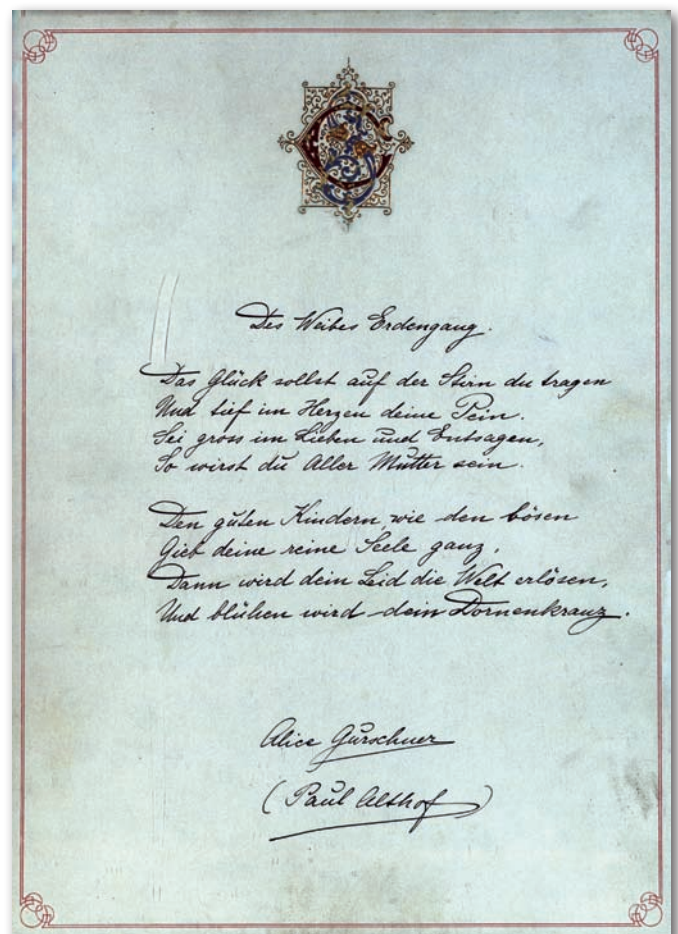 Des Weibes Erdengang.
Das Glück sollst auf der Stirn du tragen
Und tief im Herzen deine Pein.
Sei gross im Lieben und Entsagen,
So wirst du Aller Mutter sein.
Den guten Kindern, wie den bösen
Gieb deine reine Seele ganz,
Dann wird dein Leid die Welt erlösen,
Und blühen wird dein Dornenkranz.
Alice Gurschner
(Paul Althof)